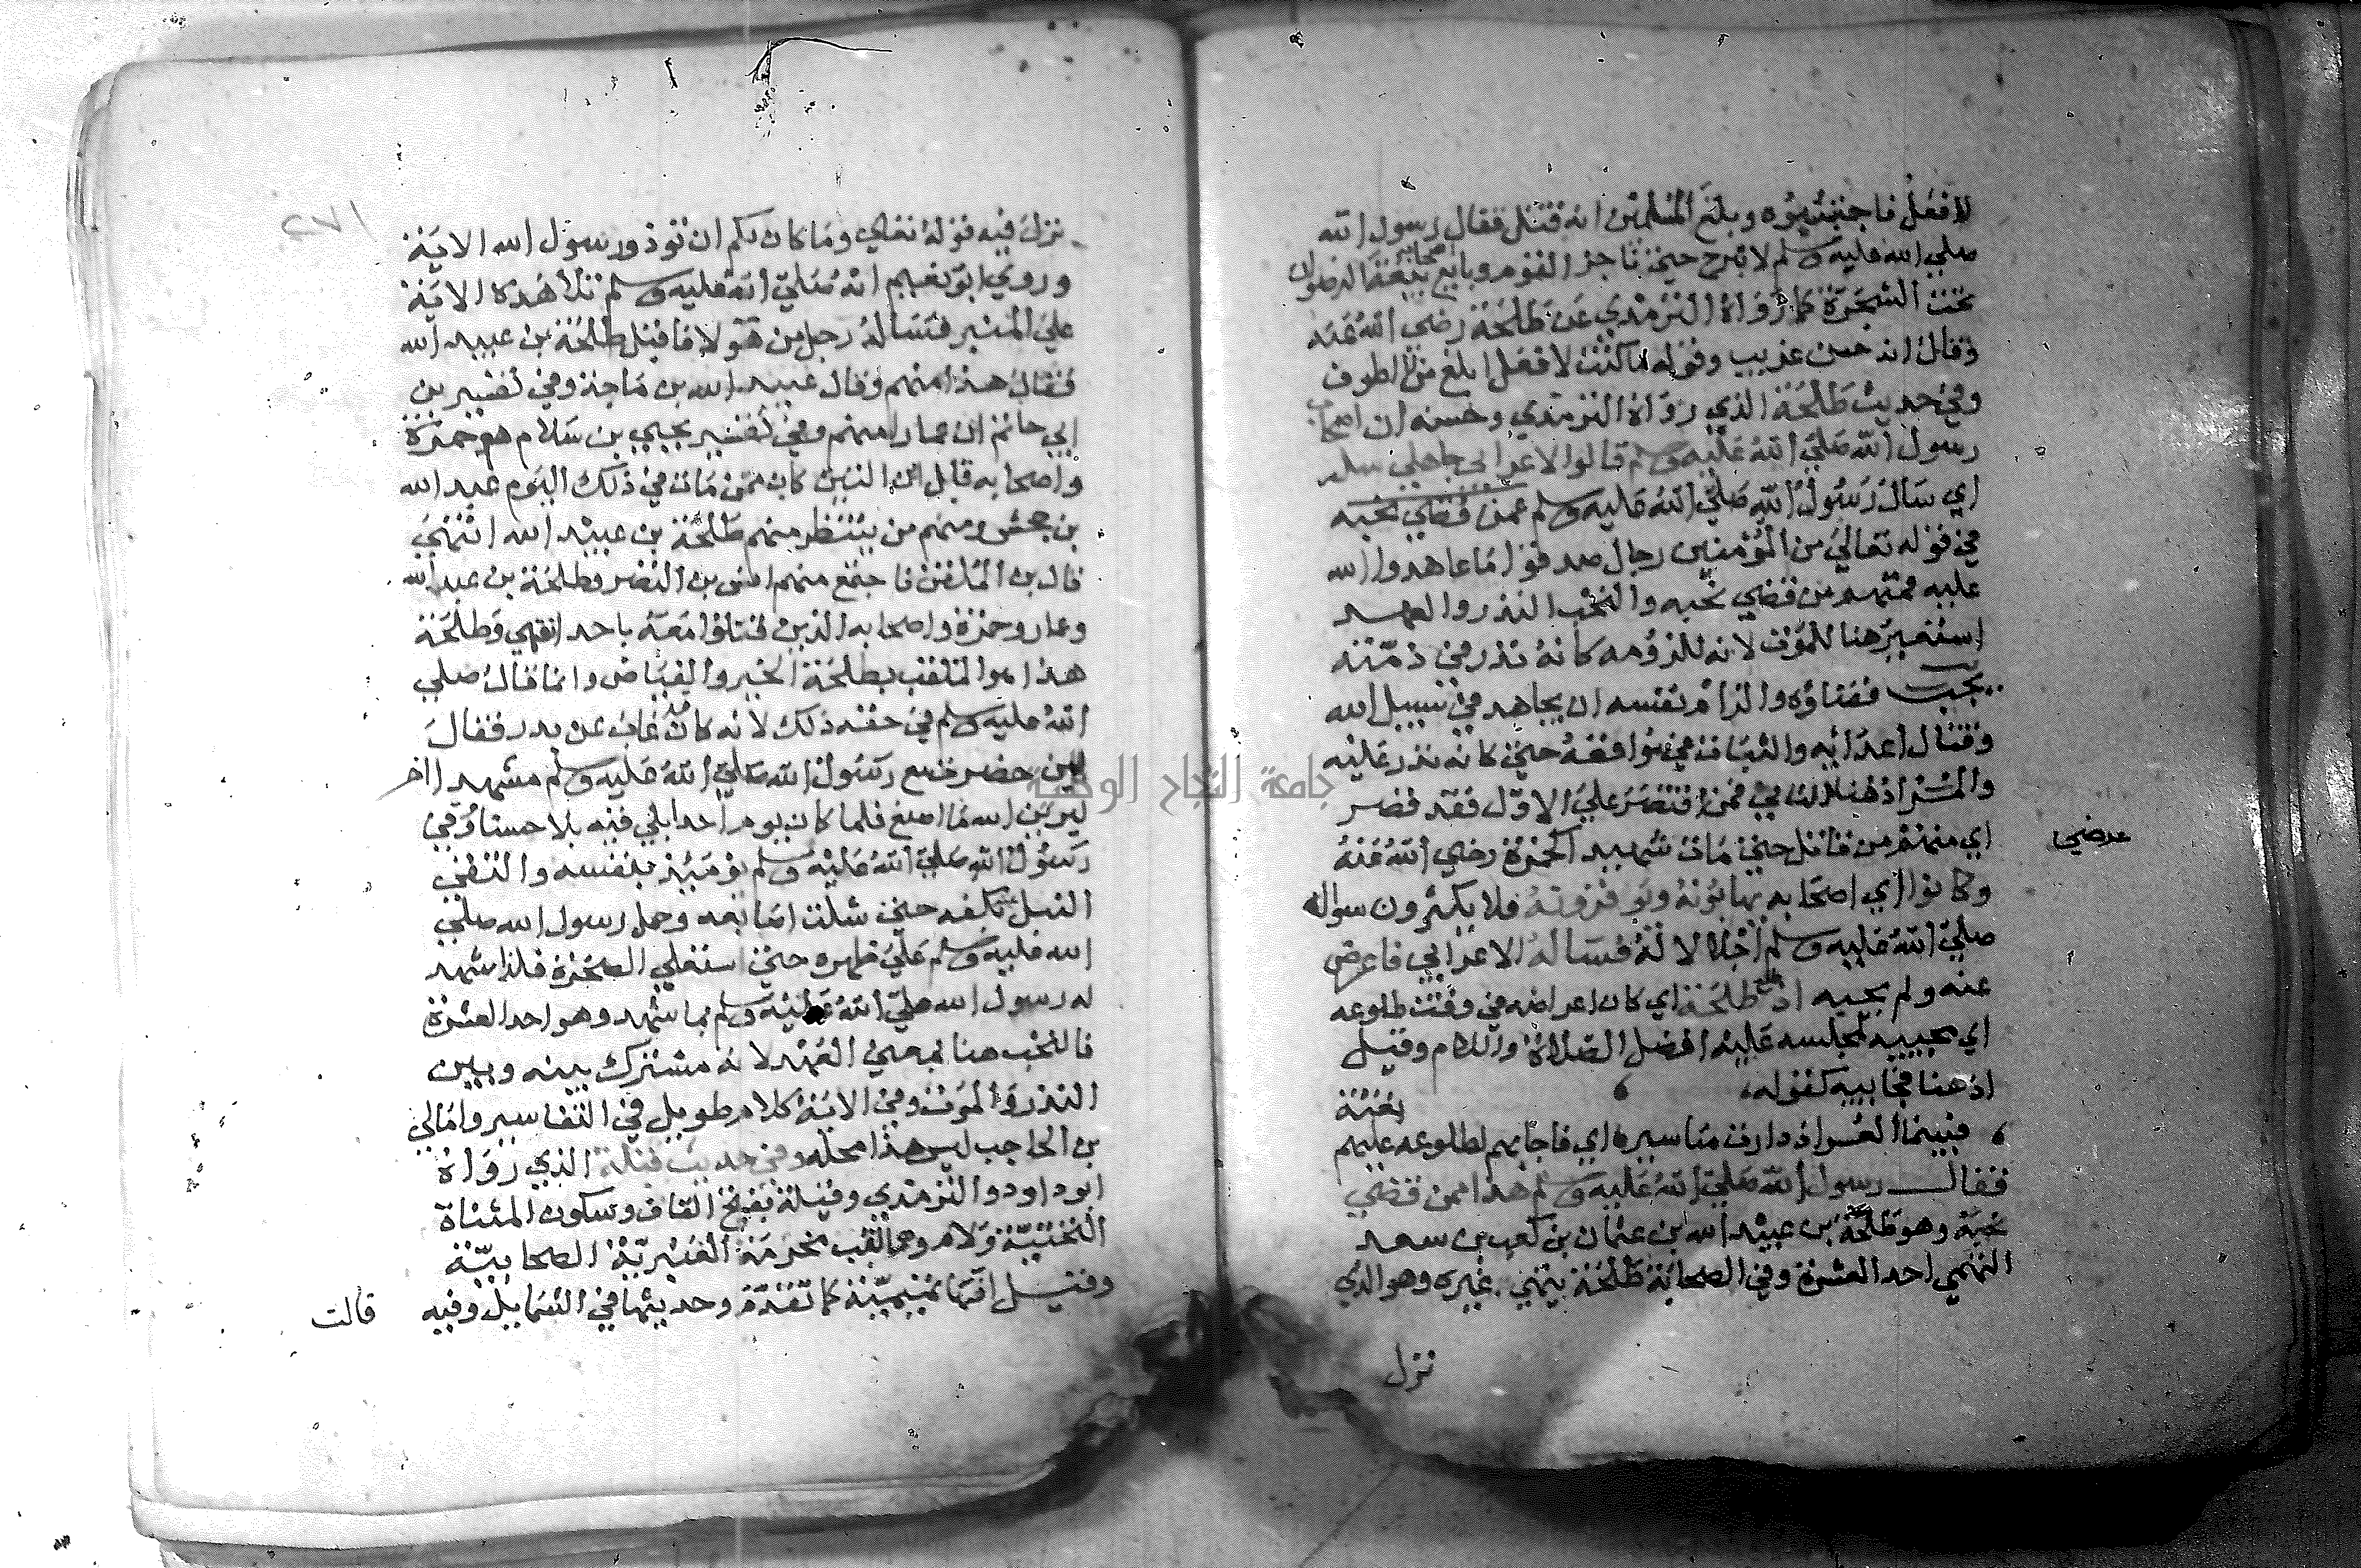 لافعل فاجتنبتموه وبلغ المسلمين انه قتل فقال رسول الله
صلي الله عليه وسلم لا نبرح حتي نناجز القوم وبايع صحابته بيعة الرضوان
تحت الشجرة كما رواه الترمذي عن طلحة رضي الله عنه
وقال انه حسن غريب وقوله ما كنت لافعل ابلغ من لا اطوف
وفي حديث طلحة الذي رواه الترمذي وحسنه ان اصحاب
رسول الله صلي الله عليه وسلم قالوا لاعرابي جاهلي سله
اي سال رسول الله صلي الله عليه وسلم عمن قضي نحبه
في قوله تعالي من المؤمنين رجال صدقوا ما عاهدوا الله
عليه فمنهم من قضي نحبه والنحب النذر والعهد
استعير هنا للموت لانه للزومه كانه نذر في ذمته
يجب قضاؤه والزام نفسه ان يجاهد في سبيل الله
وقتال اعدائه والثبات في موافقة حتي كانه نذر عليه
والمراد هنا الثاني فمن اقتصر علي الاول فقد قصر
اي منهم من قاتل حتي مات شهيد اكحمزة رضي الله عنه
عرضي
وكانوا اي اصحابه يهابونه ويوقرونه فلا يكثرون سواله
صلي الله عليه وسلم اجلالا له فساله الاعرابي فاعرض
عنه ولم يجبه اذ طلع طلحة اي كان اعراضه في وقت طلوعه
اي مجيئه لمجلسه عليه افضل الصلاة والسلام وقيل
اذ هنا فجاييه كقوله
فبينما العسر اذ دارت مياسير اي فاجاهم لطلوعه عليهم بغتة
فقال رسول الله صلي الله عليه وسلم هذا ممن قضي
نحبه وهو طلحة بن عبيد الله بن عثمان بن كعب بن سعد
التيمي احد العشرة وفي الصحابة طلحة تيمي غيره وهو الذي
نزل
٢٧١
نزل فيه قوله تعالي وما كان لكم ان توذوا رسول الله الاية
وروي ابو نعيم انه صلي الله عليه وسلم تلا هذه الاية
علي المنبر فساله رجل من هولا فاقبل طلحة بن عبيد الله
فقال هذا منهم وقال عبيد الله بن ماجة وفي تفسير بن
ابي حاتم ان عمارا منهم وفي تفسير يحيي بن سلام هو حمزة
واصحابه قابل الذين كان ممن مات في ذلك اليوم عبد الله
بن جحش ومنهم من ينتظر منهم طلحة بن عبيد الله انتهي
قال بن الملقن فاجتمع منهم انس بن النضر وطلحة بن عبد الله
وعمار وحمزة واصحابه الذين قتلوا معه باحد انتهي وطلحة
هذا هو الملقب بطلحة الخير والفياض وانما قال صلي
الله عليه وسلم في حقه ذلك لانه كان قد غاب عن بدر فقال
لين حضرت مع رسول الله صلي الله عليه وسلم مشهدا اخر
ليرين الله ما اصنع فلما كان يوم احد ابلي فيه بلا حسنا وقي
رسول الله صلي الله عليه وسلم يوميذ بنفسه واتقي
النبل بكفه حتي شلت اصابعه وحمل رسول الله صلي
الله عليه وسلم علي ظهره حتي استعلي الصخرة فلذا شهد
له رسول الله صلي الله عليه وسلم بما شهد وهو احد العشرة
فالنحب هنا بمعني العهد لانه مشترك بينه وبين
النذر والموت وفي الاية كلام طويل في التفاسير وامالي
بن الحاجب ليس هذا محله وفي حديث قيلة الذي رواه
ابو داود والترمذي وقيلة بفتح القاف وسكون المثناة
التحتية ولام بنت مخرمة العنبرية الصحابية
وقيل انها تميمية كما تقدم وحديثها في الشمايل وفيه
قالت
جامعة النجاح الوطنية